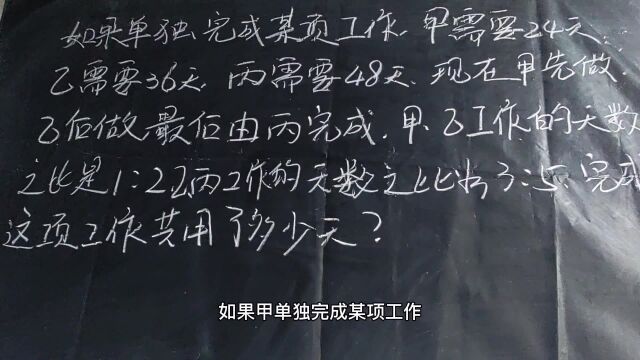 如果单独完成某项工作.甲需要24天,
乙需要36天.丙需要48天.现在甲先做.
乙后做最后由丙完成.甲.乙工作的天数
之比是1:2乙丙工作的天数之比为3:5.完成
这项工作共用了多少天?
如果甲单独完成某项工作